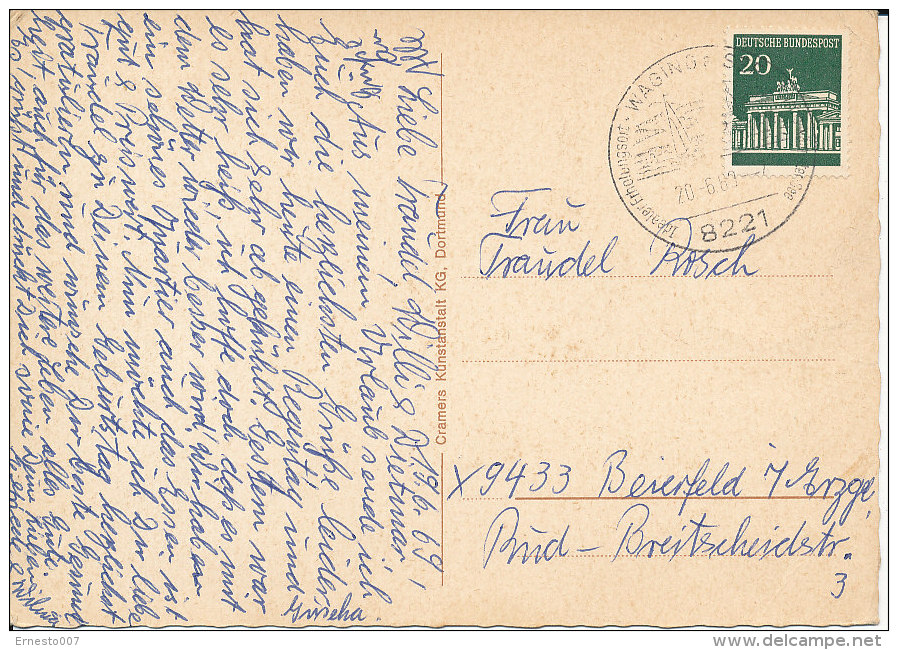 19.6.69.
Liebe Traudel, Willi & Dietmar!
Aus meinem Urlaub sende ich
Euch die herzlichsten Grüße. Leider
haben wir heute einen Regentag und
hat sich sehr abgekühlt. Gestern war
es sehr heiß, ich hoffe doch daß es mit
dem Wetter wieder besser wird. Wir haben
ein schönes Quartier auch das Essen ist
gut & Preiswert. Nun möchte ich Dir liebe
Traudel zu Deinem Geburtstag herzlichst
gratulieren und wünsche Dir beste Gesund-
heit auch für das weitere Leben alles Gute.
Es grüsst und drückt Dich Deine
Cramers Kunstanstalt KG, Dortmund
DEUTSCHE BUNDESPOST
20
WAGING
Idealer Erholungsort
20.-6.69
8221
Frau
Traudel Rösch
X9433 Beierfeld i/Erzge.
Rud-Breitscheidstr.
3
Ernesto007
delcampe.net